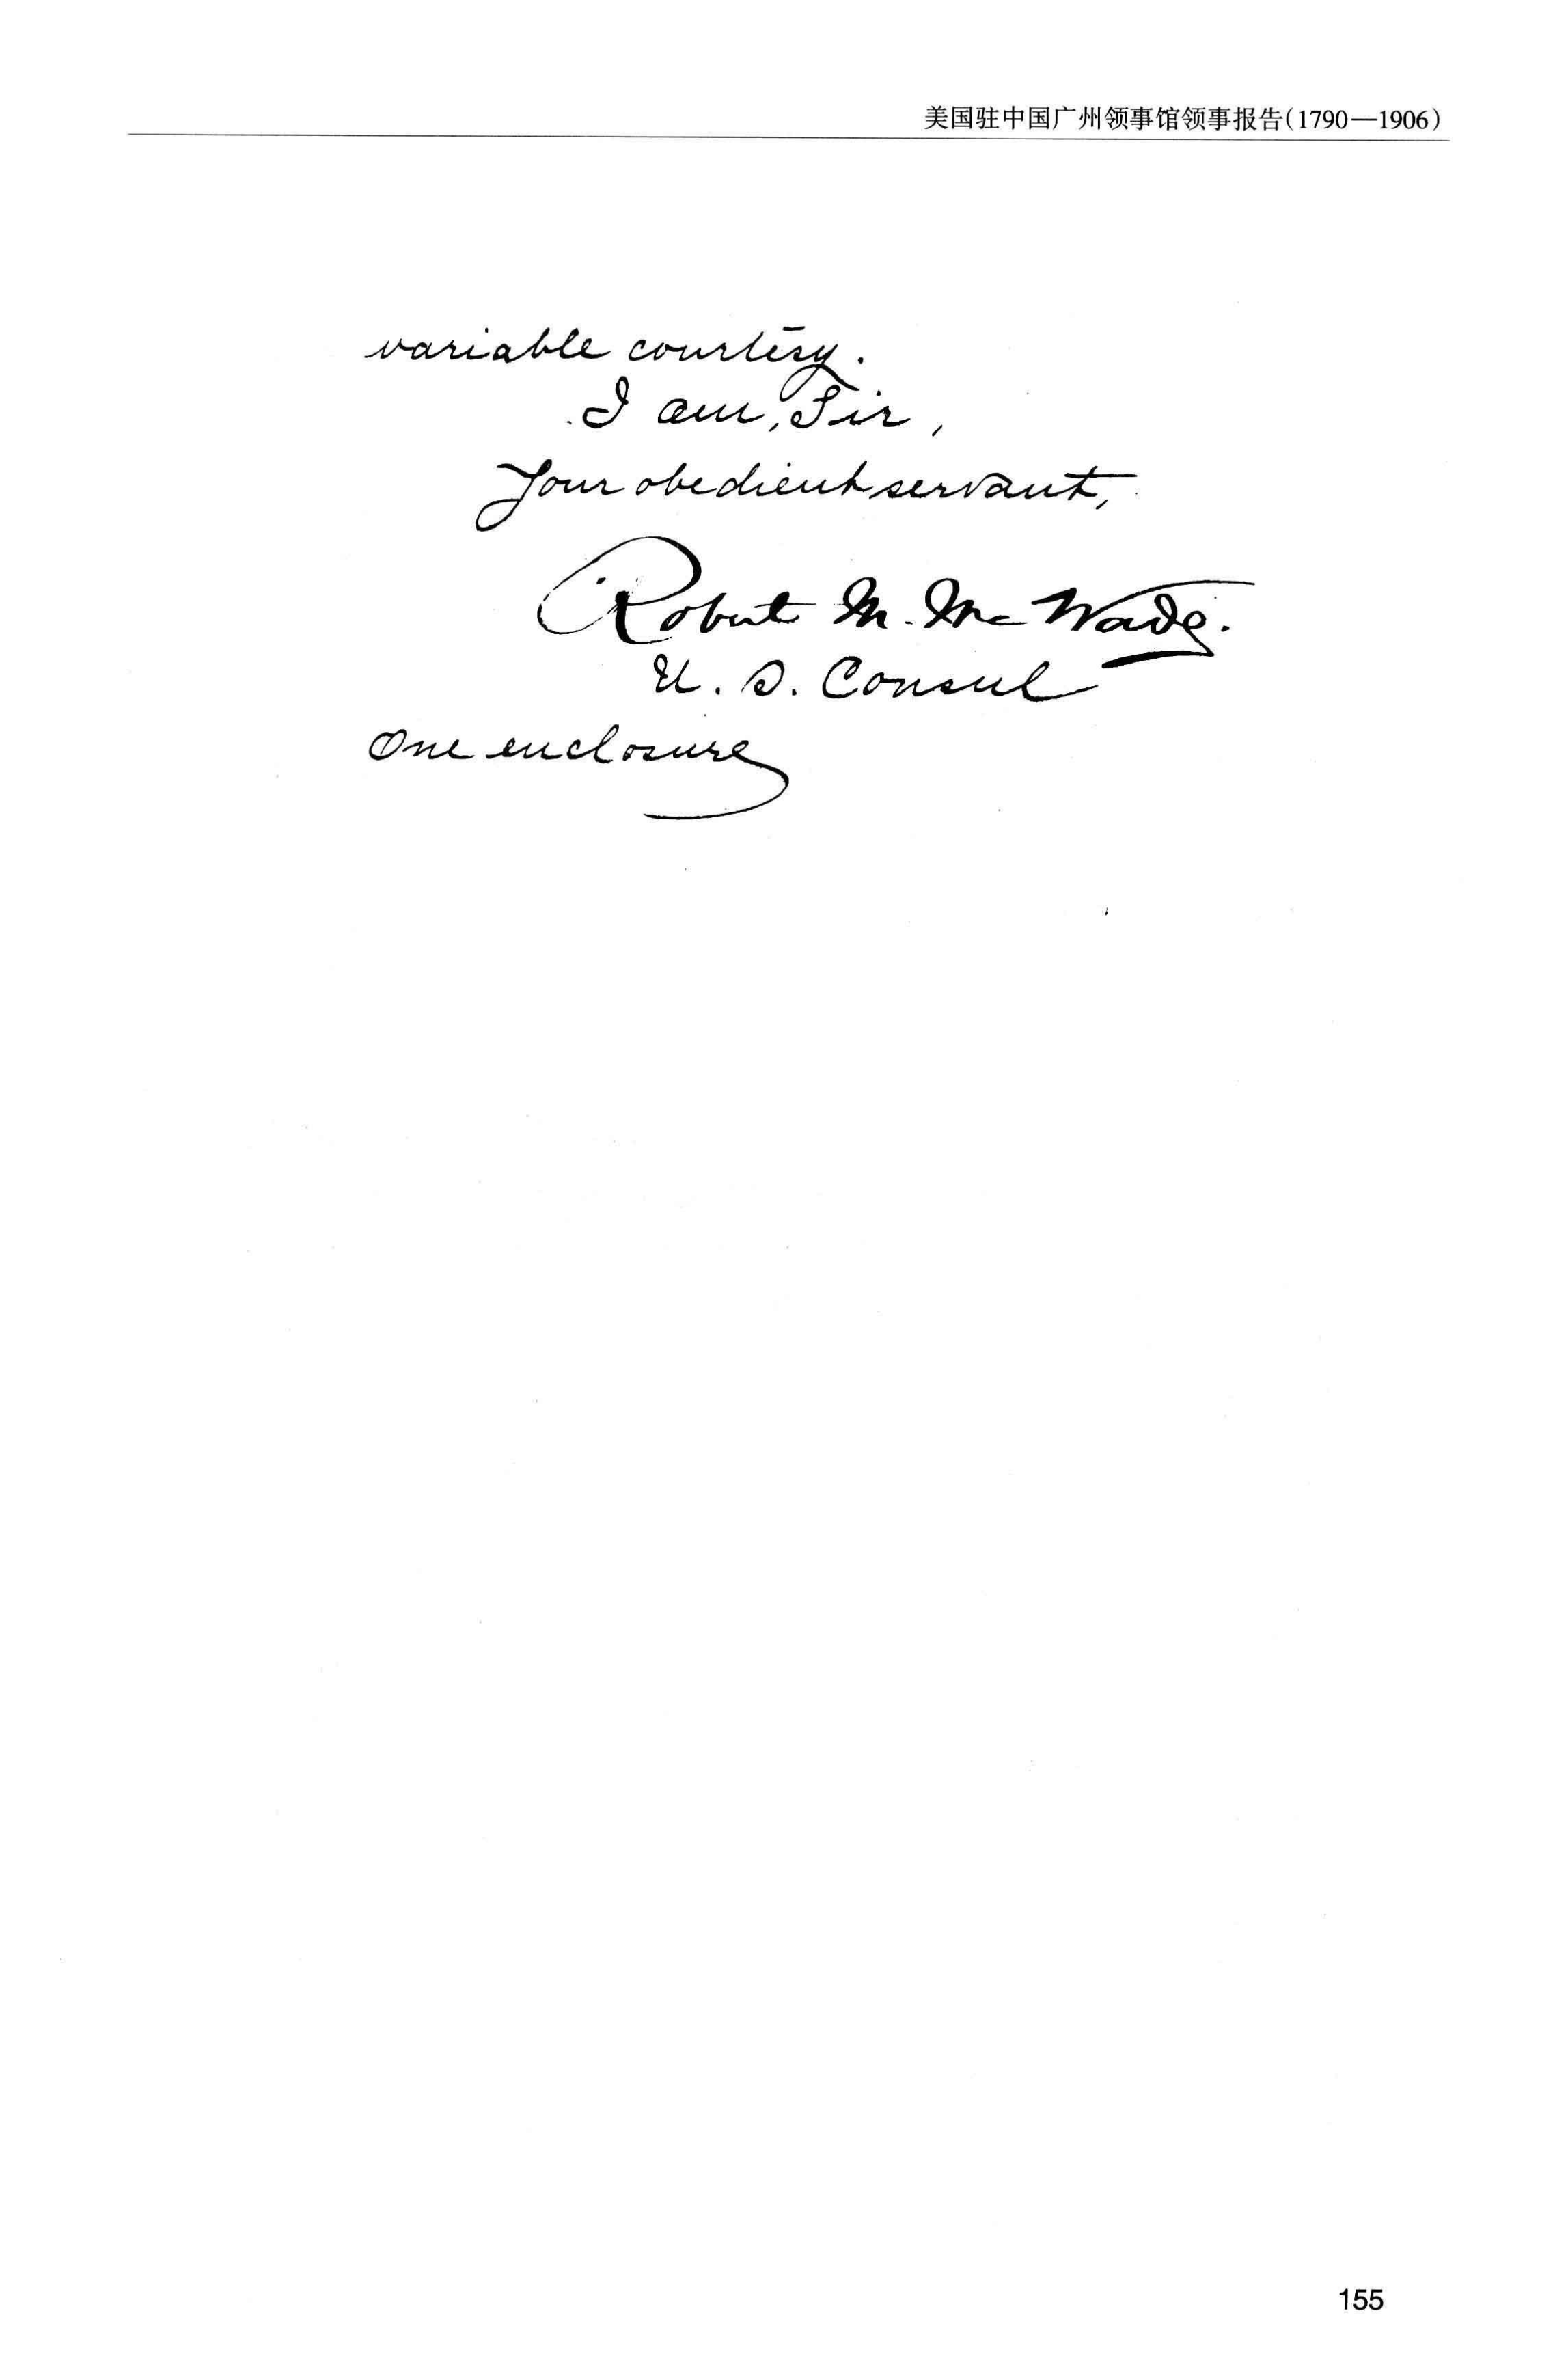 美国驻中国广州领事馆领事报告(1790—1906)
variable courtesy.
I am, Sir,
Your obedient servant,
Robert M. McWade.
U. S. Consul
One enclosure
155